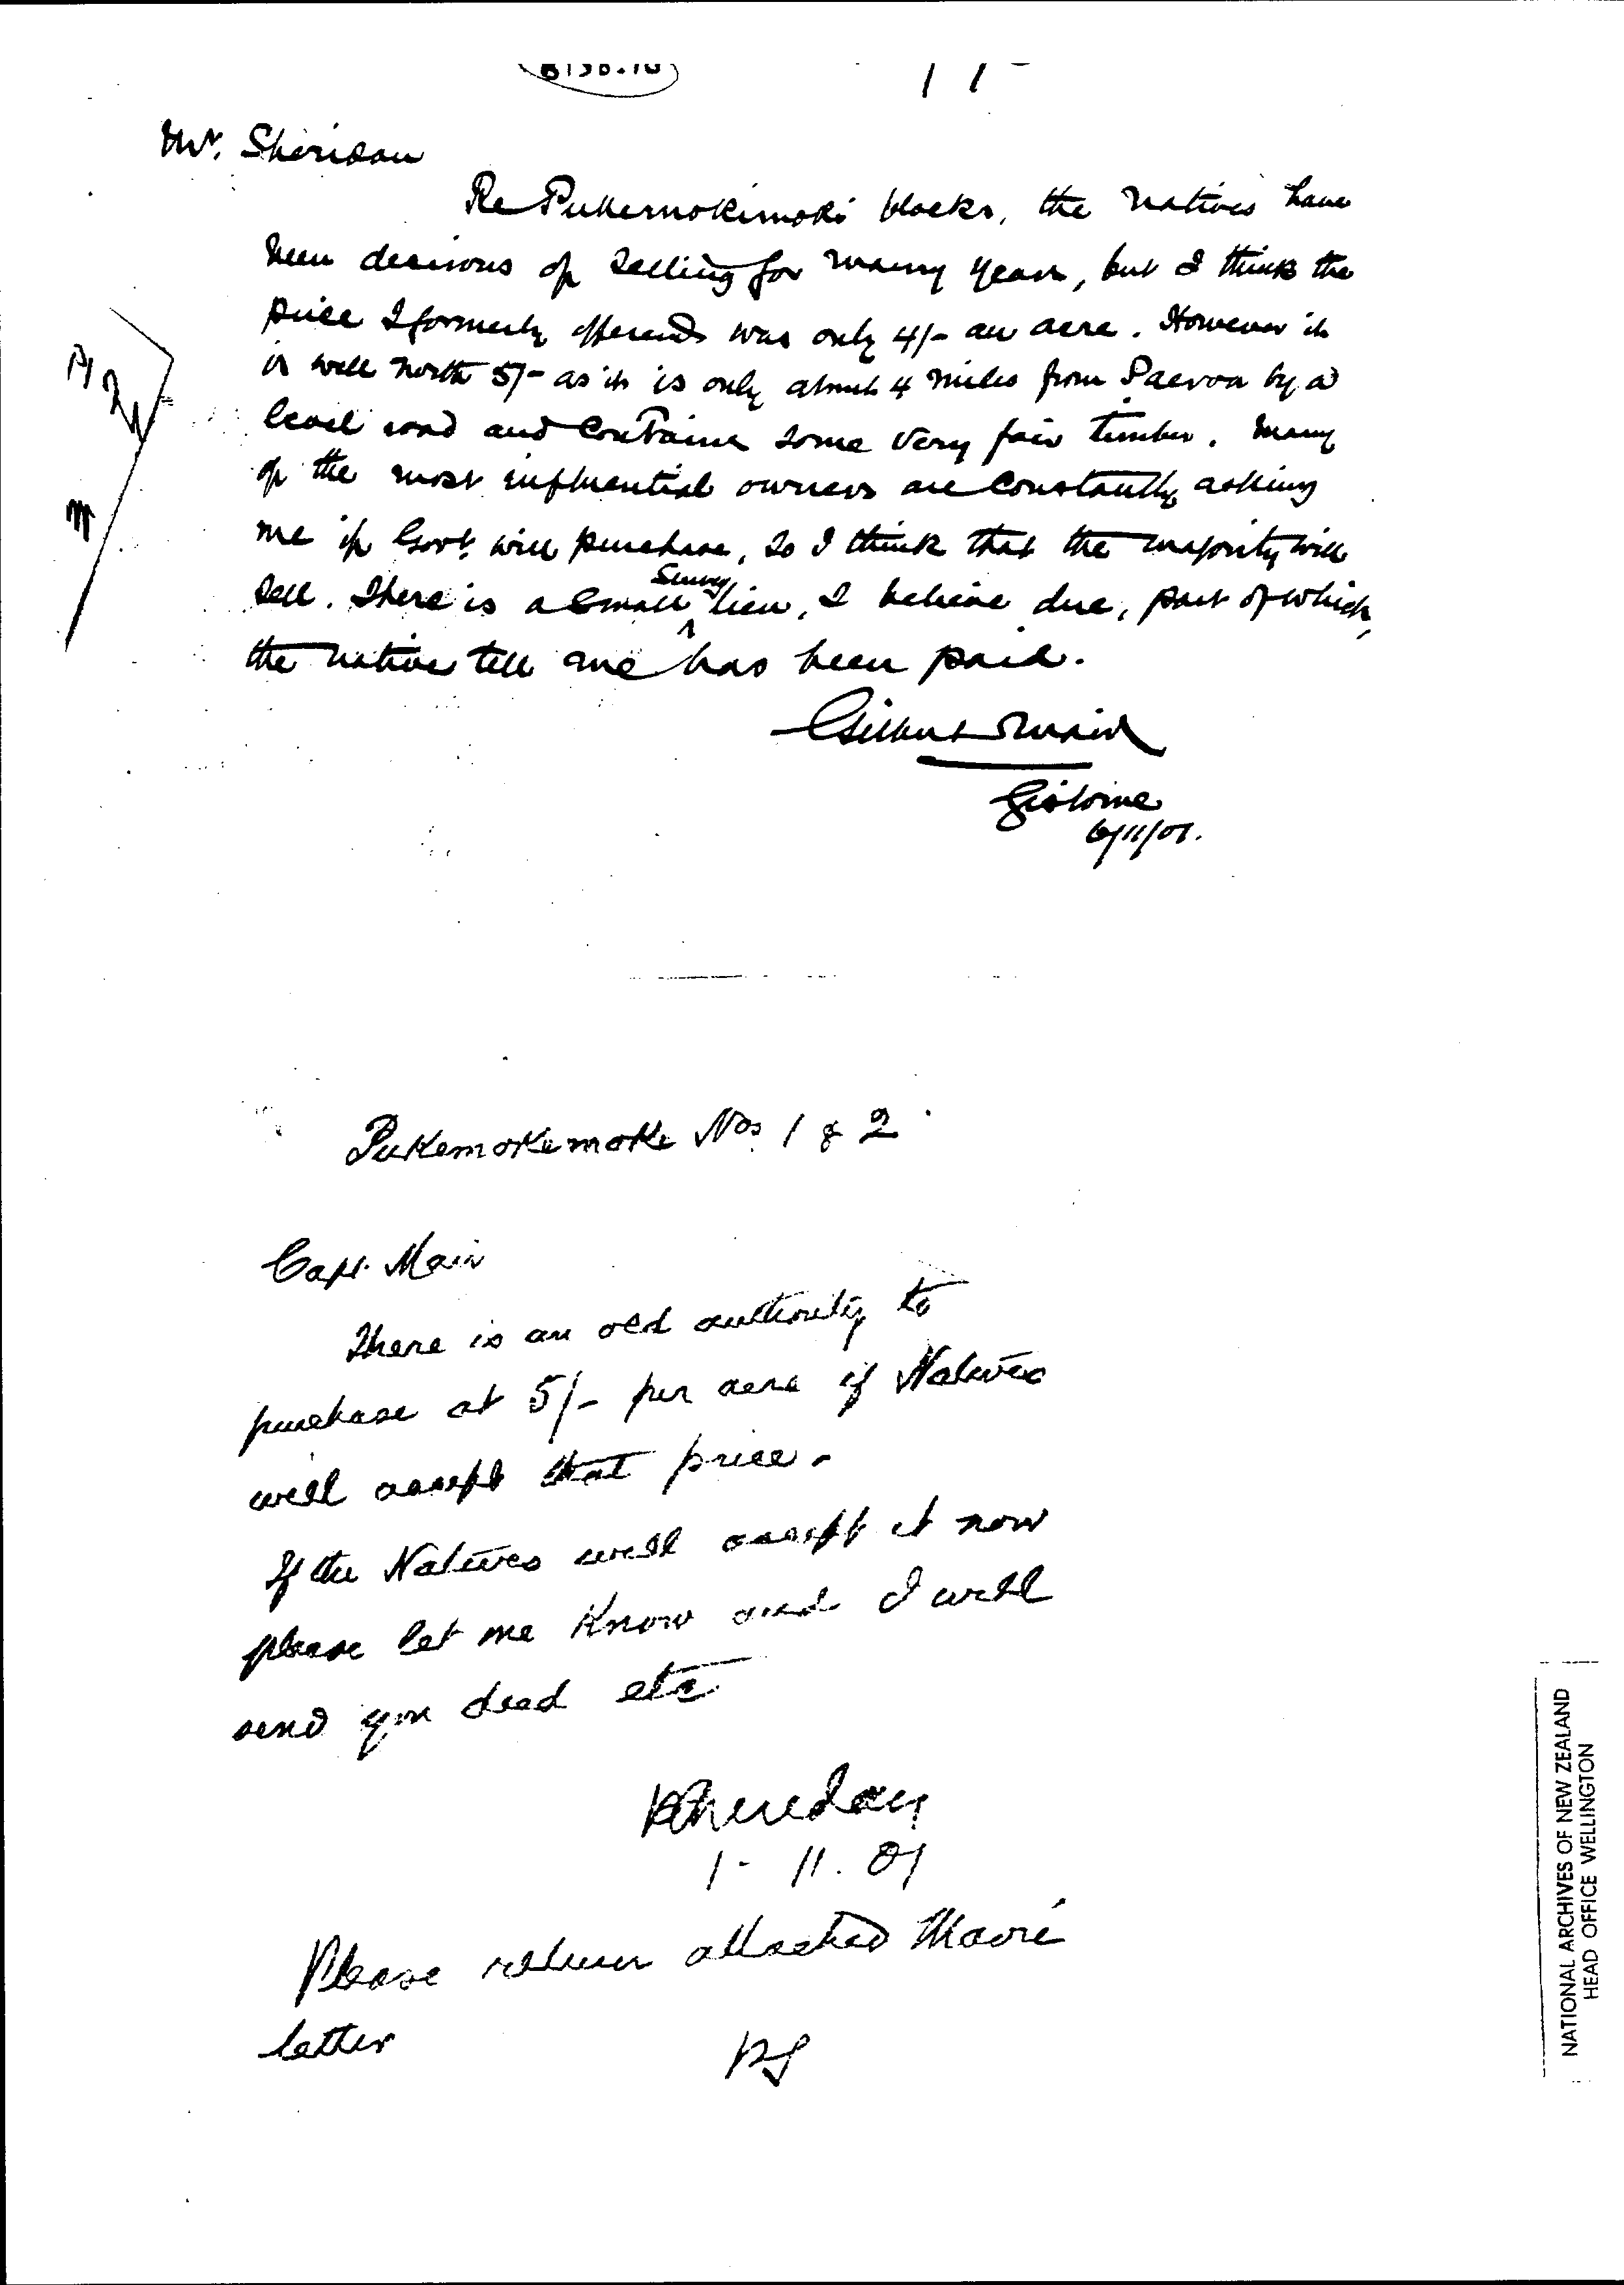 Mr. Sheridan
Re Pukemokimoki blocks, the natives have
been desirous of selling for many years, but I think the
price I formerly offered was only 4/- an acre. However it
is well worth 5/- as it is only about 4 miles from Paeroa by a
level road and contains some very fair timber. Many
of the most influential owners are constantly asking
me if Govt. will purchase, so I think that the majority will
sell. There is a small survey lien, I believe due, part of which,
the natives tell me has been paid.
Gilbert Mair
Gisborne
6/11/01.
Pukemokemoke Nos. 1 & 2
Capt. Mair
There is an old authority to
purchase at 5/- per acre if Natives
will accept that price.
If the Natives will accept it now
please let me know and I will
send you deed etc
PSheridan
1-11.01
Please return attached Maori
letter
PS
NATIONAL ARCHIVES OF NEW ZEALAND
HEAD OFFICE WELLINGTON